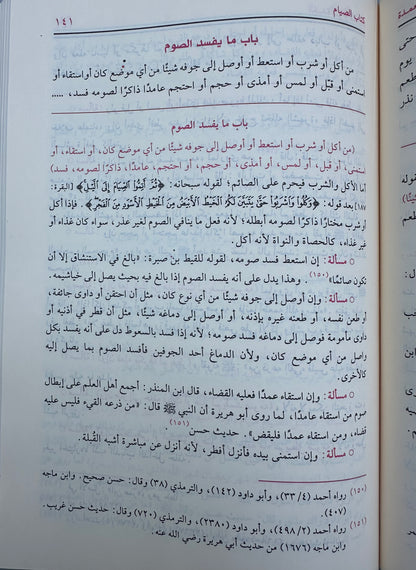 كتاب الصيام
١٤١
باب ما يفسد الصوم
من أكل أو شرب أو استعط أو أوصل إلى جوفه شيئًا من أي موضع كان أو استقاء أو
استمنى أو قبَّل أو لمس أو أمذى أو حجم أو احتجم عامدًا ذاكرًا لصومه فسد، .....
باب ما يفسد الصوم
(من أكل أو شرب أو استعط أو أوصل إلى جوفه شيئًا من أي موضع كان، أو استقاء، أو
استمنى، أو قبل، أو لمس، أو أمذى، أو حجم، أو احتجم، عامدًا، ذاكرًا لصومه، فسد)
أما الأكل والشرب فيحرم على الصائم؛ لقوله سبحانه: ﴿ثُمَّ أَتِمُّوا الصِّيَامَ إِلَى اللَّيْلِ﴾ (البقرة:
١٨٧) بعد قوله: ﴿وَكُلُوا وَاشْرَبُوا حَتَّى يَتَبَيَّنَ لَكُمُ الْخَيْطُ الْأَبْيَضُ مِنَ الْخَيْطِ الْأَسْوَدِ مِنَ الْفَجْرِ﴾. فإذا أكل
أو شرب مختارًا ذاكرًا لصومه أبطله؛ لأنه فعل ما ينافي الصوم لغير عذر، سواء كان غذاء أو
غير غذاء، كالحصاة والنواة لأنه أكل.
○ مسألة: إن استعط فسد صومه، لقوله للقيط بن صبرة: «بالغ في الاستنشاق إلا أن
تكون صائمًا»(١٥٠). وهذا يدل على أنه يفسد الصوم إذا بالغ فيه بحيث يصل إلى خياشيمه.
○ مسألة: وإن أوصل إلى جوفه شيئًا من أي نوع كان، مثل أن احتقن أو داوى جائفة،
أو طعن نفسه، أو طعنه غيره بإذنه، أو أوصل إلى دماغه شيئًا، مثل أن قطر في أذنيه أو
داوى مأمومة فوصل إلى دماغه فسد صومه؛ لأنه إذا فسد بالسعوط دل على أنه يفسد بكل
واصل من أي موضع كان، ولأن الدماغ أحد الجوفين فأفسد الصوم بما يصل إليه
كالأخرى.
○ مسألة: وإن استقاء عمدًا فعليه القضاء، قال ابن المنذر: أجمع أهل العلم على إبطال
صوم من استقاء عامدًا، لما روى أبو هريرة أن النبي ﷺ قال: «من ذرعه القيء فليس عليه
قضاء، ومن استقاء عمدًا فليقض». حديث حسن(١٥١).
○ مسألة: وإن استمنى بيده فأنزل أفطر، لأنه أنزل عن مباشرة أشبه القُبلة.
(١٥٠) رواه أحمد (٤/ ٣٣)، وأبو داود (١٤٢)، والترمذي (٣٨) وقال: حسن صحيح. وابن ماجه
(٤٠٧).
(١٥١) رواه أحمد (٢/ ٤٩٨)، وأبو داود (٢٣٨٠)، والترمذي (٧٢٠) وقال: حديث حسن غريب.
وابن ماجه (١٦٧٦) من حديث أبي هريرة رضي الله عنه.